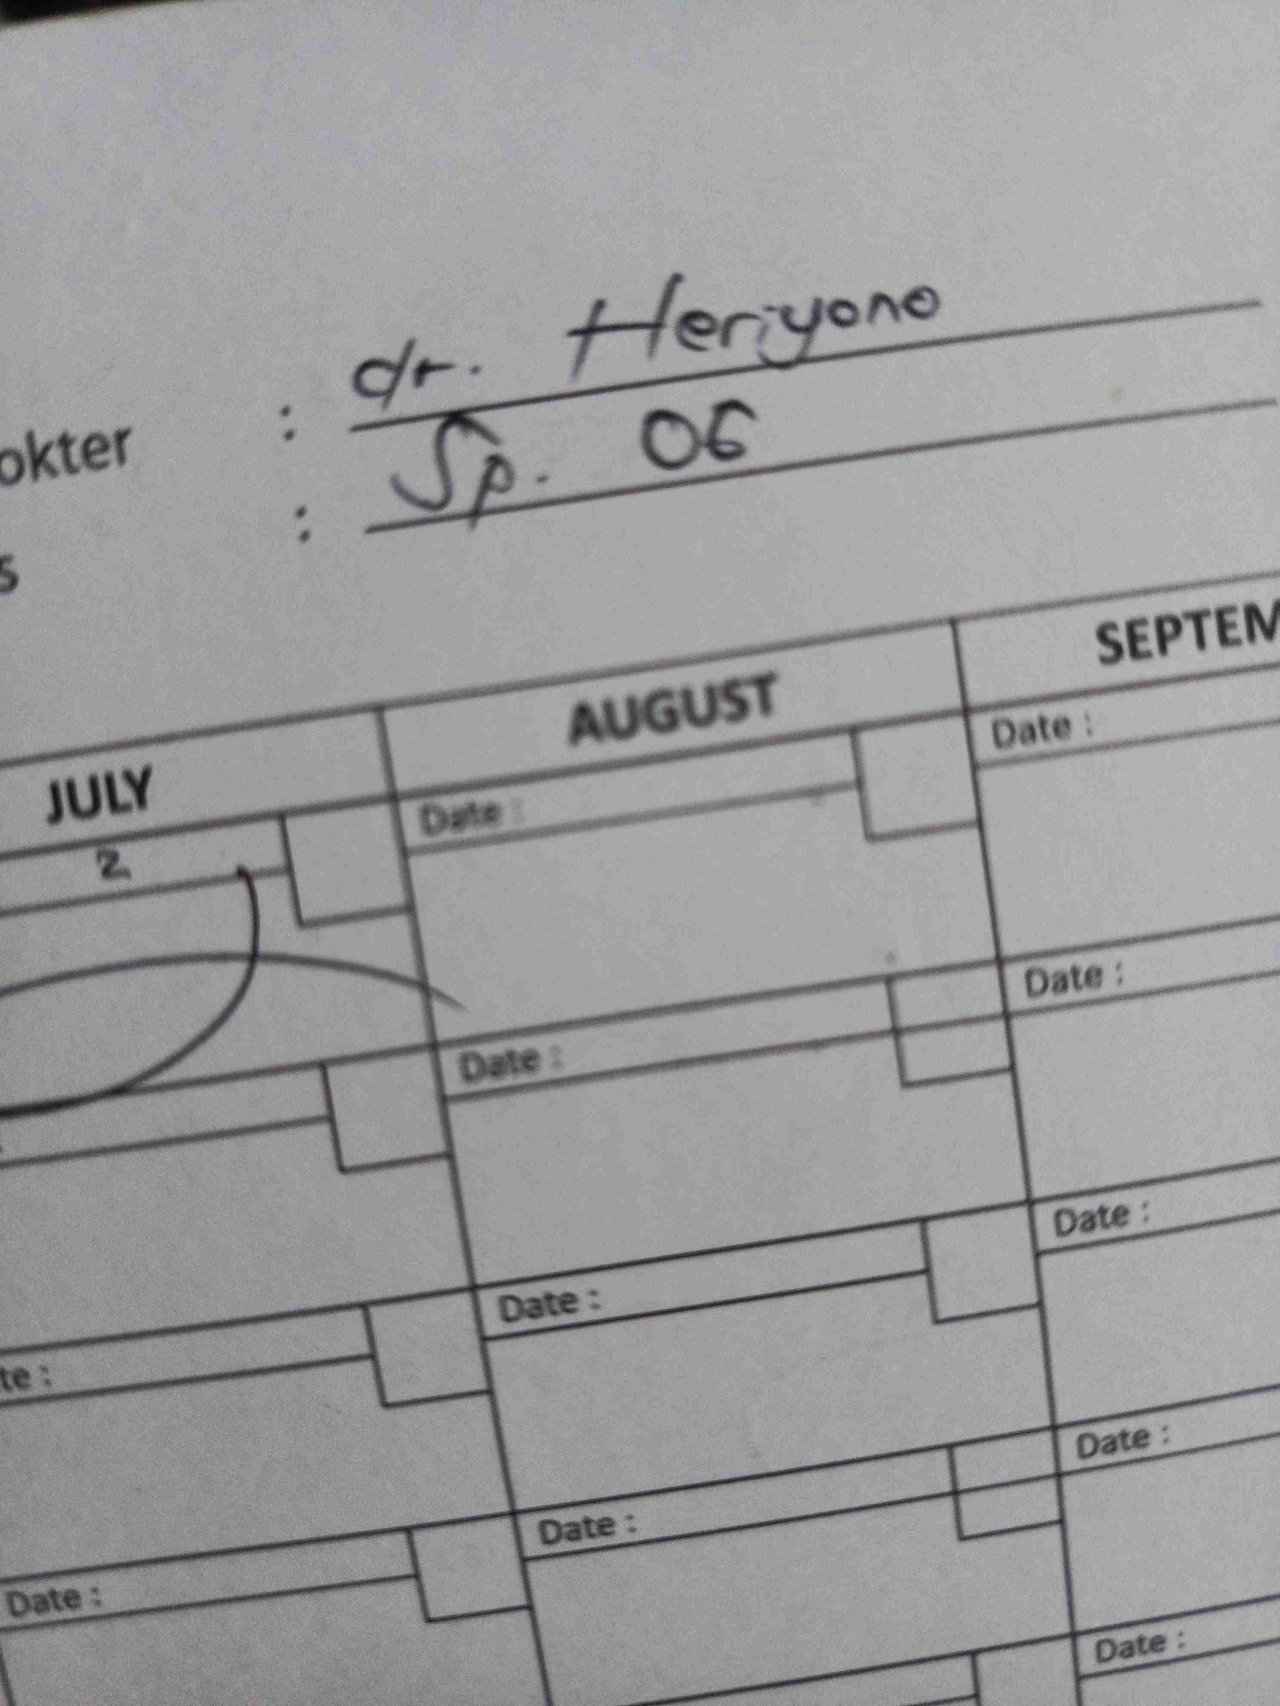 okter : dr. Heriyono
s : Sp. OG
JULY AUGUST SEPTEM
2 Date : Date :
Date : Date :
Date : Date :
te : Date :
Date : Date :
Date :